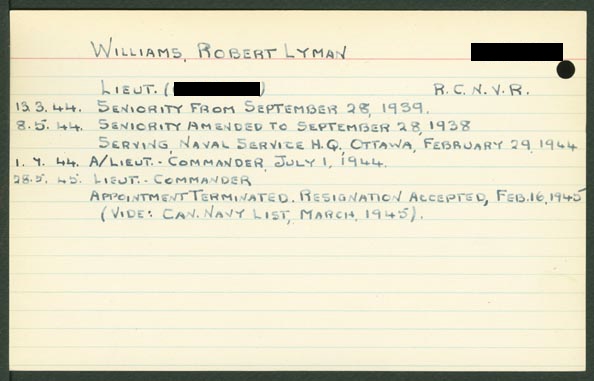 WILLIAMS, ROBERT LYMAN
LIEUT. ( ) R.C.N.V.R.
13.3.44. SENIORITY FROM SEPTEMBER 28, 1939.
8.5.44. SENIORITY AMENDED TO SEPTEMBER 28, 1938
SERVING, NAVAL SERVICE H.Q. OTTAWA, FEBRUARY 29, 1944
1.7.44. A/LIEUT.-COMMANDER, JULY 1, 1944.
28.5.45. LIEUT.-COMMANDER
APPOINTMENT TERMINATED. RESIGNATION ACCEPTED, FEB. 16, 1945
(VIDE: CAN. NAVY LIST, MARCH, 1945).